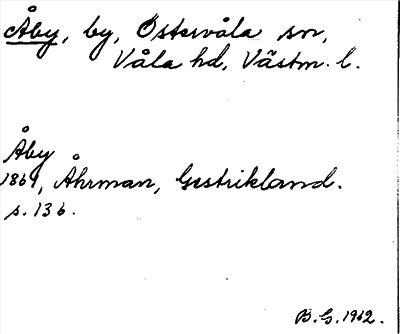 Åby, by, Östervåla sn,
Våla hd, Västm. l.
Åby
1861, Åhrman, Gestrikland.
s. 136.
B.G. 1962.